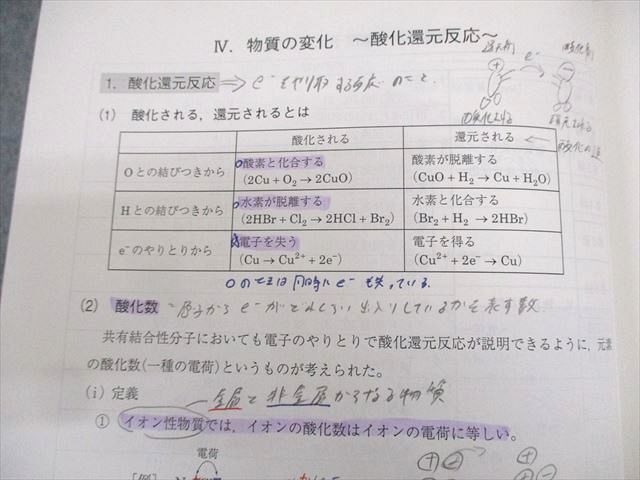 Ⅳ. 物質の変化 〜酸化還元反応〜
還元剤 e⁻ 酸化剤
1. 酸化還元反応 ⇒ e⁻をやり取りする反応のこと
酸化される 還元される
(1) 酸化される，還元されるとは
酸化される 還元される
Oとの結びつきから 酸素と化合する 酸素が脱離する
(2Cu + O₂ → 2CuO) (CuO + H₂ → Cu + H₂O)
Hとの結びつきから 水素が脱離する 水素と化合する
(2HBr + Cl₂ → 2HCl + Br₂) (Br₂ + H₂ → 2HBr)
e⁻のやりとりから 電子を失う 電子を得る
(Cu → Cu²⁺ + 2e⁻) (Cu²⁺ + 2e⁻ → Cu)
同時に e⁻ も失っている.
(2) 酸化数 = 原子から e⁻ がどれくらい出入りしているかを表す数
共有結合性分子においても電子のやりとりで酸化還元反応が説明できるように，元素
の酸化数(一種の電荷)というものが考えられた。
(i) 定義 金属と非金属からなる物質
① イオン性物質では，イオンの酸化数はイオンの電荷に等しい。
電荷
[例]